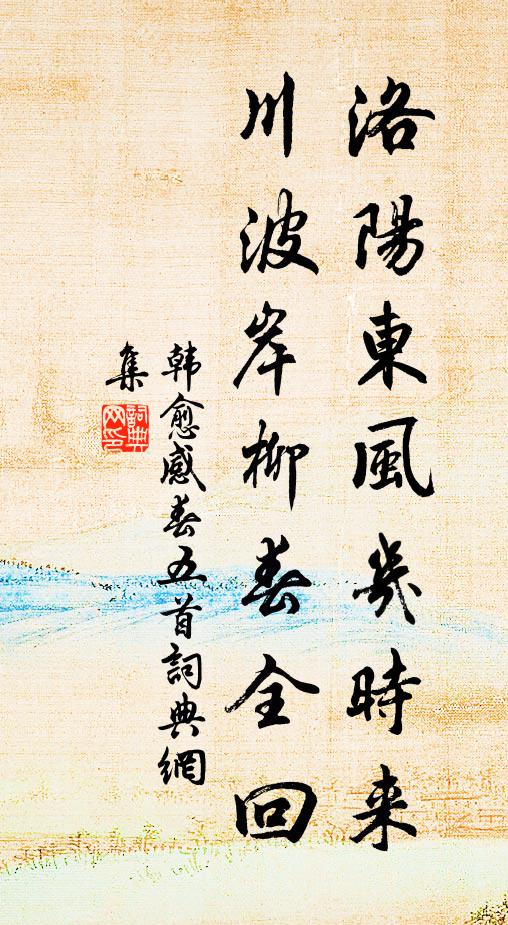 洛陽東風幾時来
川波岸柳春全回
韩愈感春五首詞典網
集
詞典网印